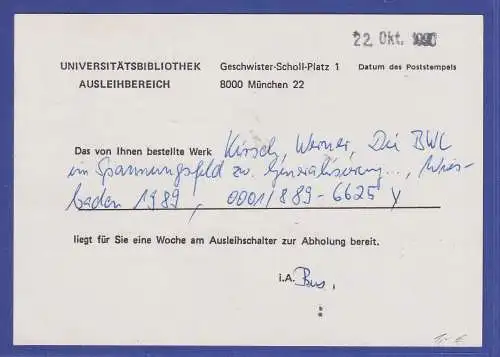 22. Okt. 1990
UNIVERSITÄTSBIBLIOTHEK Geschwister-Scholl-Platz 1 Datum des Poststempels
AUSLEIHBEREICH 8000 München 22
Das von Ihnen bestellte Werk Kirsch, Werner, Die BWL
im Spannungsfeld zw. Generalisierung..., Wies-
baden 1989, 0001/889-6625 y
liegt für Sie eine Woche am Ausleihschalter zur Abholung bereit.
i.A.